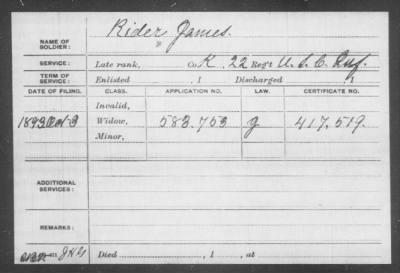 NAME OF SOLDIER: Rider, James.
SERVICE: Late rank, Co. K, 22 Reg't U. S. C. Inf.
TERM OF SERVICE: Enlisted , 1 Discharged , 1
DATE OF FILING. CLASS. APPLICATION NO. LAW. CERTIFICATE NO.
Invalid,
1893 Oct 3 Widow, 583.753 g 417,519.
Minor,
ADDITIONAL SERVICES:
REMARKS:
Died , 1 , at